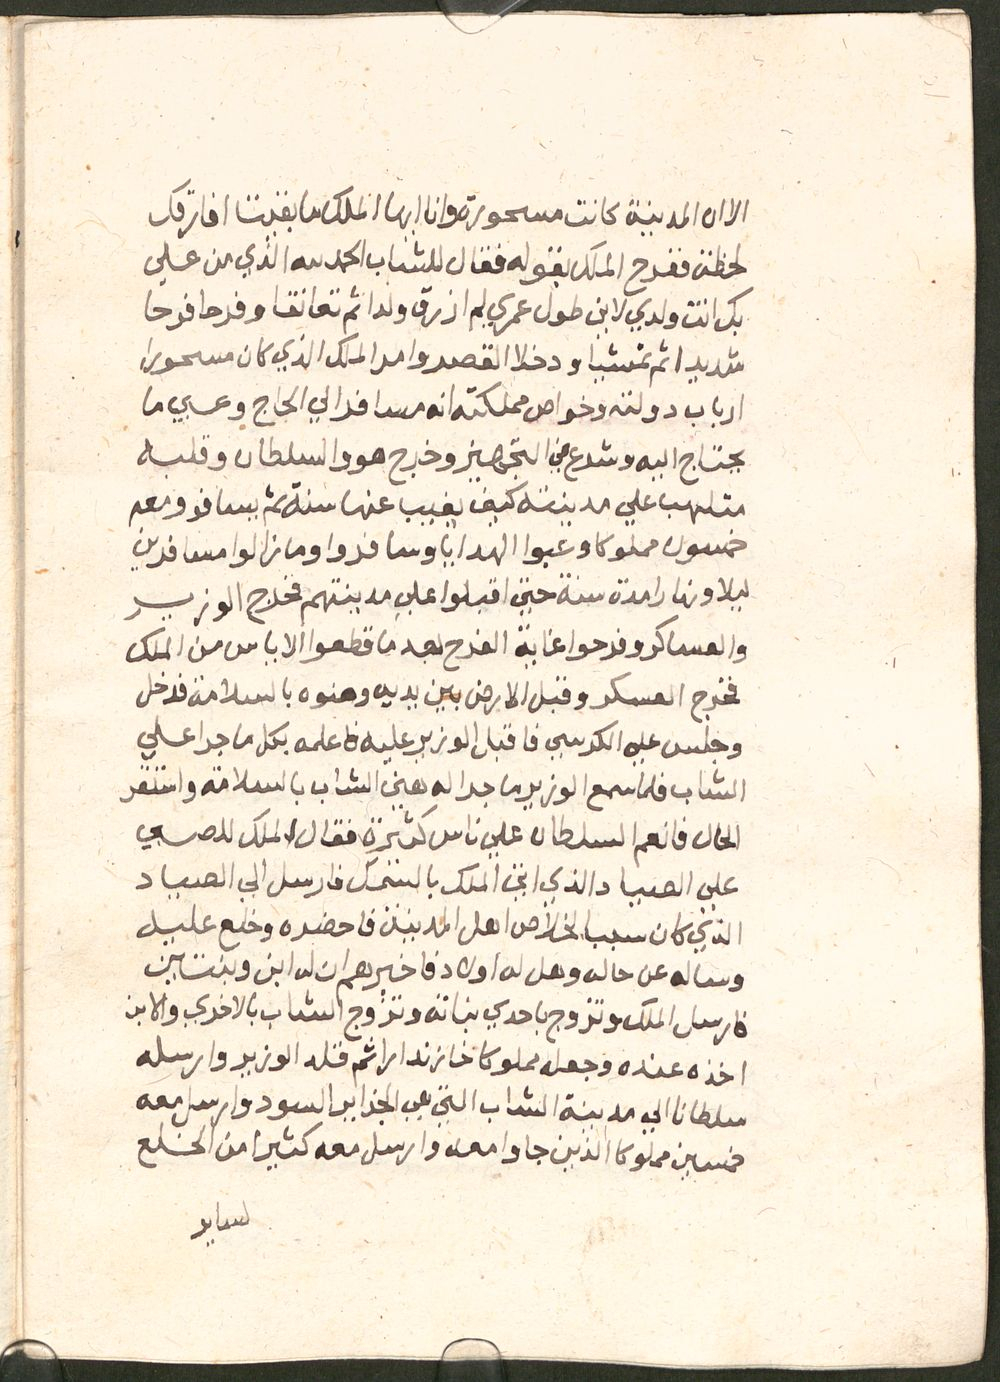 الا ان المدينة كانت مسحورة وانا ايها الملك ما بقيت افارقك
لحظة ففرح الملك بقوله فقال للشاب الحمد لله الذي من علي
بك انت ولدي لاني طول عمري لم ازرق ولدا ثم تعانقا وفرحا فرحا
شديدا ثم تمشيا ودخلا القصر وامر الملك الذي كان مسحورا
ارباب دولته وخواص مملكته انه مسافر الي الحاج وعبي ما
يحتاج اليه وشرع في التجهيز وخرج هو والسلطان وقلبه
متلهب علي مدينته كيف يغيب عنها سنة ثم يسافر ومعه
خمسون مملوكا وعبوا الهدايا وسافروا وما زالوا مسافرين
ليلا ونهارا مدة سنة حتي اقبلوا علي مدينتهم فخرج الوزير
والعساكر وفرحوا غاية الفرح بعد ما قطعوا الاياس من الملك
فخرج العسكر وقبل الارض بين يديه وهنوه بالسلامة فدخل
وجلس علي الكرسي فاقبل الوزير عليه فاعلمه بكل ما جرا علي
الشاب فلما سمع الوزير ما جرا له هني الشاب بالسلامة واستقر
الحال فانعم السلطان علي ناس كثيرة فقال الملك للصبي
علي الصياد الذي اتي الملك بالسمك فارسل الي الصياد
الذي كان سببا لخلاص اهل المدينة فاحضره وخلع عليه
وساله عن حاله وهل له اولاد فاخبرهم ان له ابن وبنتين
فارسل الملك وتزوج باحدي بناته وتزوج الشاب بالاخري والابن
اخذه عنده وجعله مملوكا خازندارا ثم قلد الوزير وارسله
سلطانا الي مدينة الشاب التي هي الجزاير السود وارسل معه
خمسين مملوكا الذين جاوا معه وارسل معه كثيرا من الخلع
لساير